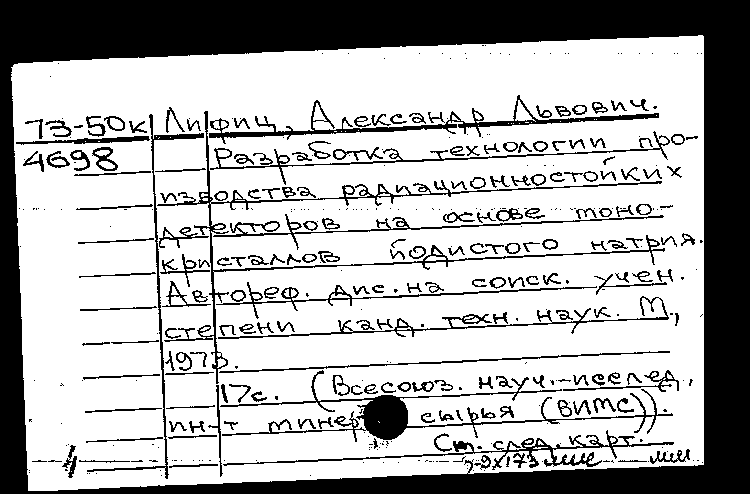 73-50к Лифиц, Александр Львович.
4698 Разработка технологии про-
изводства радиационностойких
детекторов на основе моно-
кристаллов йодистого натрия.
Автореф. дис. на соиск. учен.
степени канд. техн. наук. М.,
1973.
17с. (Всесоюз. науч.-исслед.
ин-т минер сырья (ВИМС)).
См. след. карт.